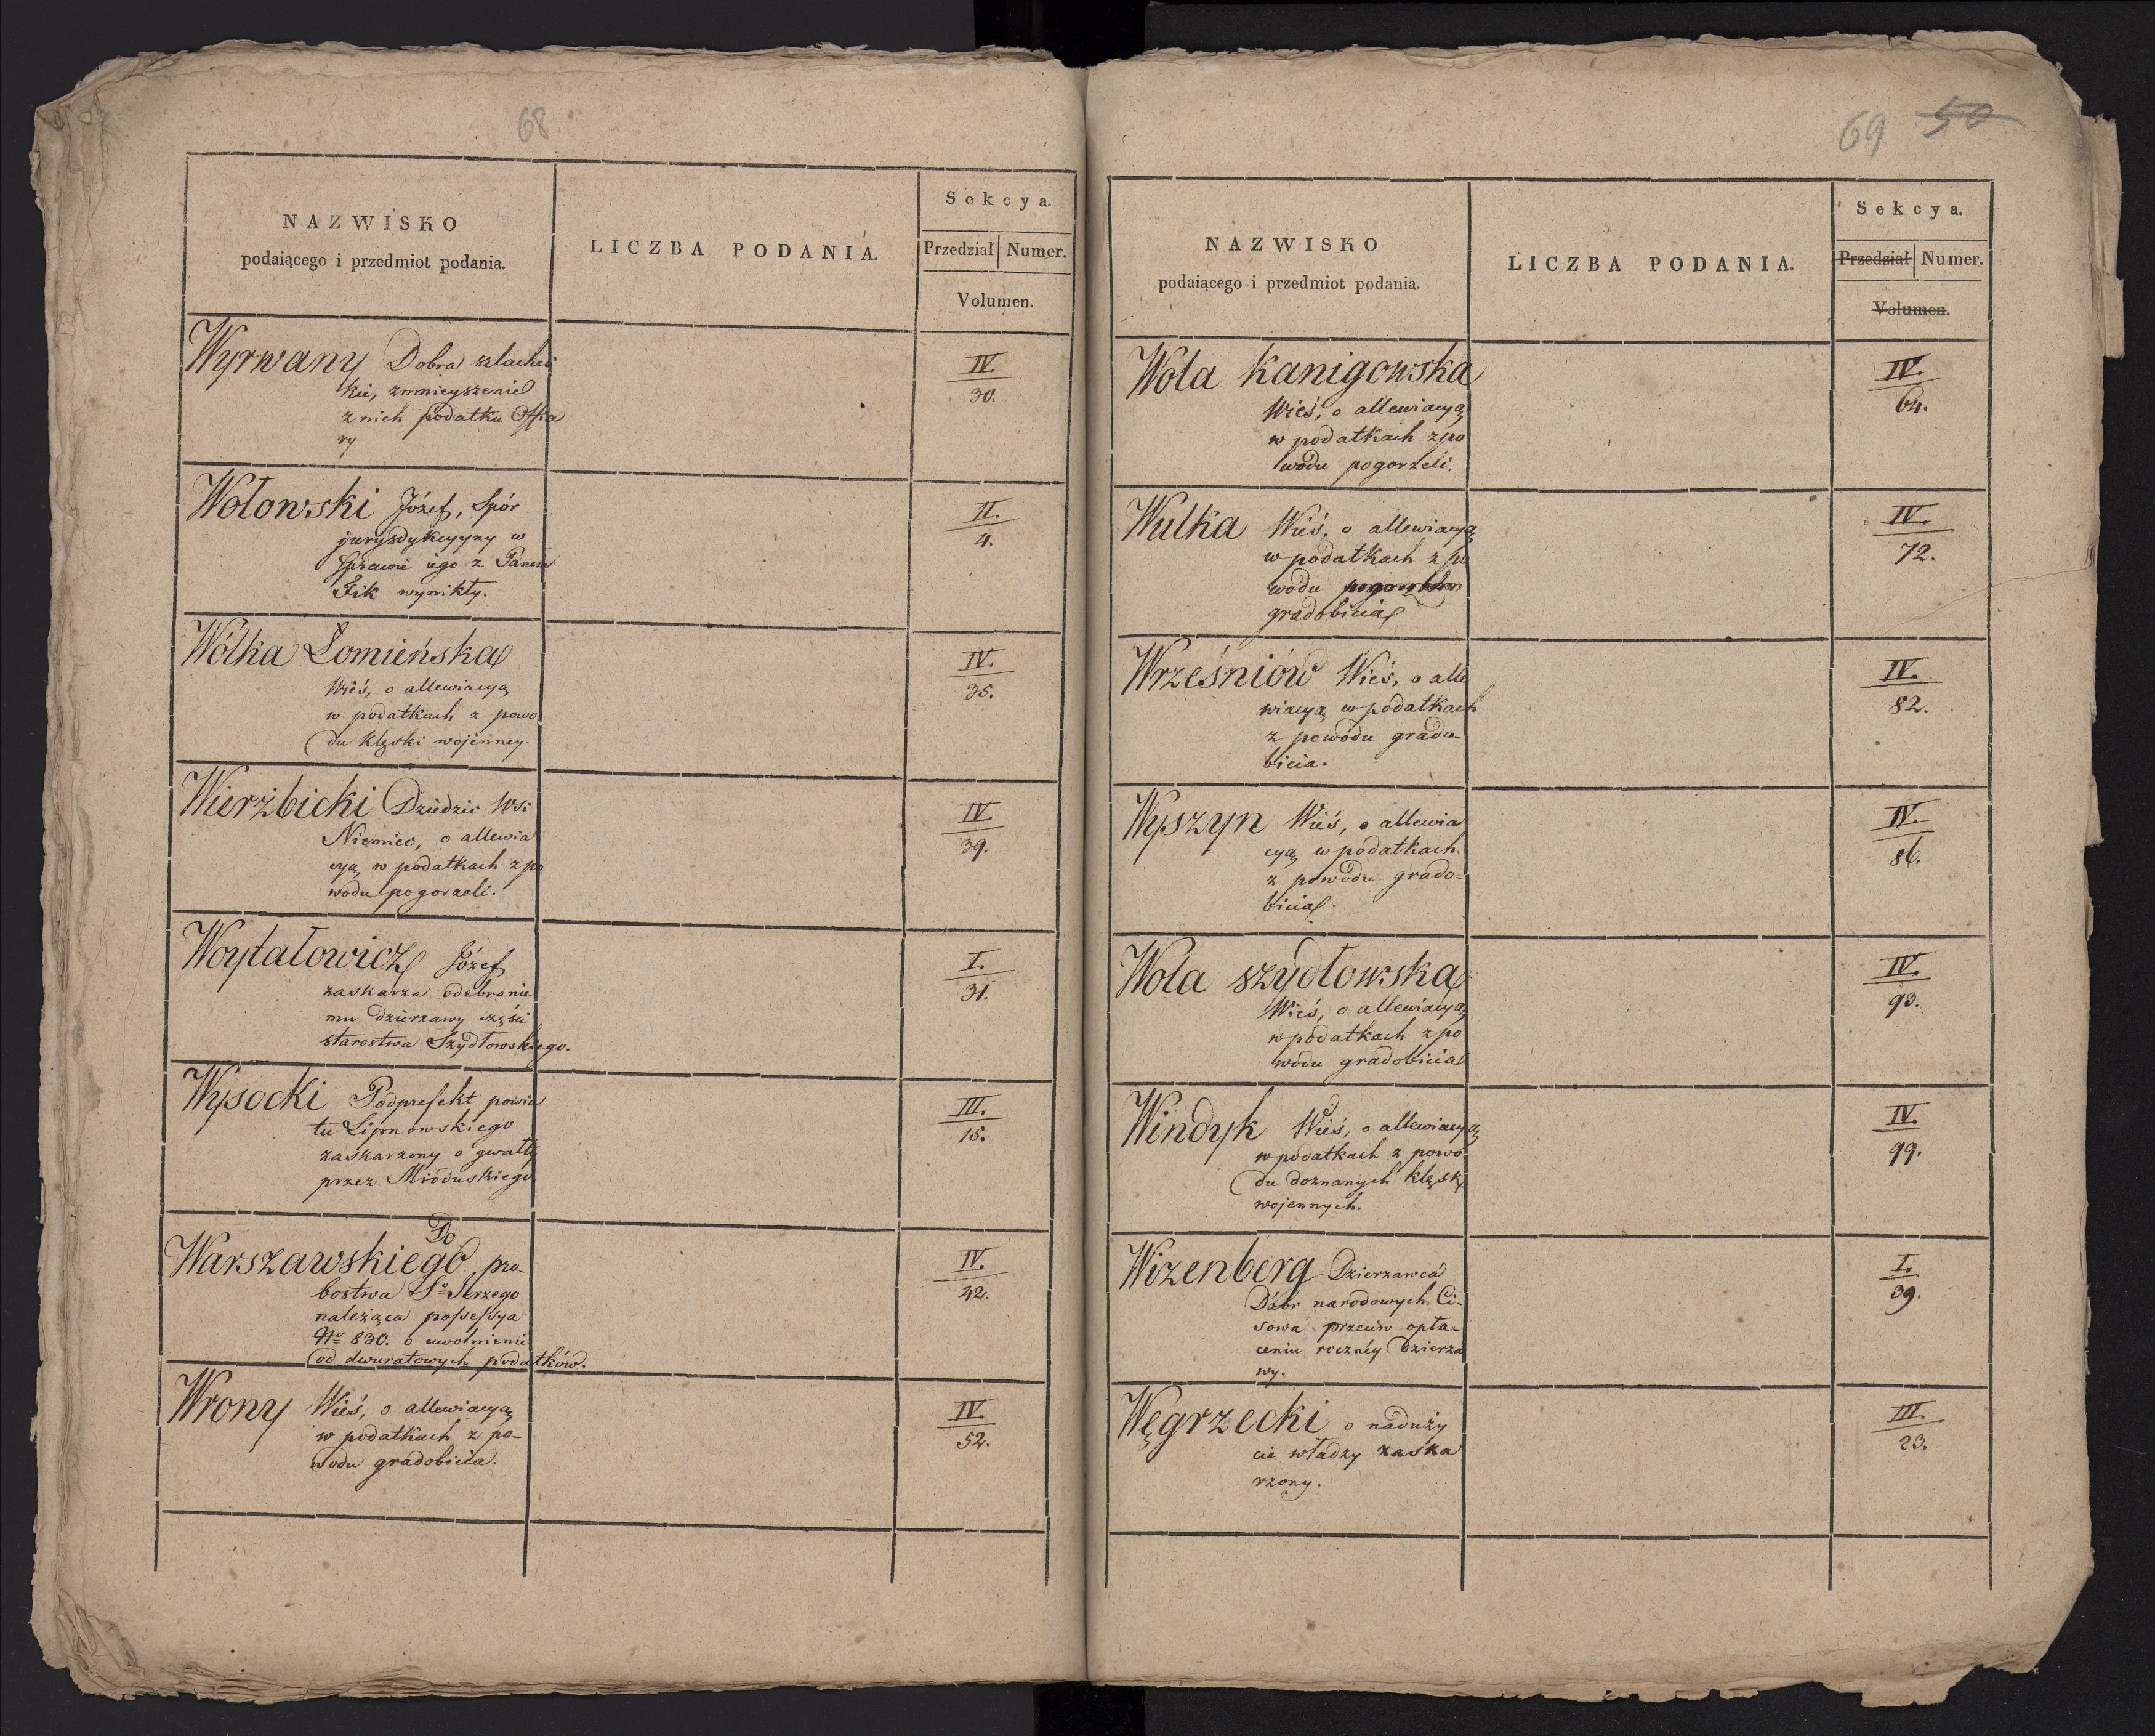 68
NAZWISKO
podaiącego i przedmiot podania.
LICZBA PODANIA.
Sekcya.
Przedział Numer.
Volumen.
Wyrwany Dobra szlachec
kie, zmnieyszenie
z nich podatku Offia
ry
IV.
30.
Wołowski Józef, Spór
jurysdykcyyny w
Sprawie iego z Panem
Fik wynikły.
II.
4.
Wólka Łomieńska
Wieś, o allewiacyą
w podatkach z powo
du klęski wojenney.
IV.
35.
Wierżbicki Dziedzic Wsi
Niemiec, o allewia
cyą w podatkach z po
wodu pogorzeli.
IV.
39.
Woytałowicz Józef
zaskarża odebranie
mu dzierzawy części
starostwa Szydłowskiego.
I.
31.
Wysocki Podprefekt powia
tu Lipnowskiego
zaskarzony o gwałty
przez Mioduskiego
III.
15.
Do
Warszawskiego pro-
bostwa So Jerzego
należąca possessya
Nr 830. o uwolnienie
od dwuratowych podatków.
IV.
42.
Wrony Wieś, o allewiacyą
w podatkach z po-
wodu gradobicia.
IV.
52.
69 50
NAZWISKO
podaiącego i przedmiot podania.
LICZBA PODANIA.
Sekcya.
Przedział Numer.
Volumen.
Wola Kanigowska
Wieś, o allewiacyą
w podatkach z po
wodu pogorzeli.
IV.
64.
Wulka Wieś, o allewiacyą
w podatkach z po
wodu
gradobicia
IV.
72.
Wrześniów Wieś, o alle
wiacyą w podatkach
z powodu grado-
bicia.
IV.
82.
Wyszyn Wieś, o allewia
cyą w podatkach
z powodu grado-
bicia.
IV.
86.
Wola szydłowska
Wieś, o allewiacyą
w podatkach z po
wodu gradobicia
IV.
93.
Windyk Wieś, o allewiacyą
w podatkach z powo
du doznanych klęsk
wojennych.
IV.
99.
Wizenberg Dzierzawca
Dóbr narodowych Ci-
sowa przeciw opła-
ceniu roczney dzierza
wy.
I.
39.
Węgrzecki o naduży
cie władzy zaska
rzony.
III.
23.